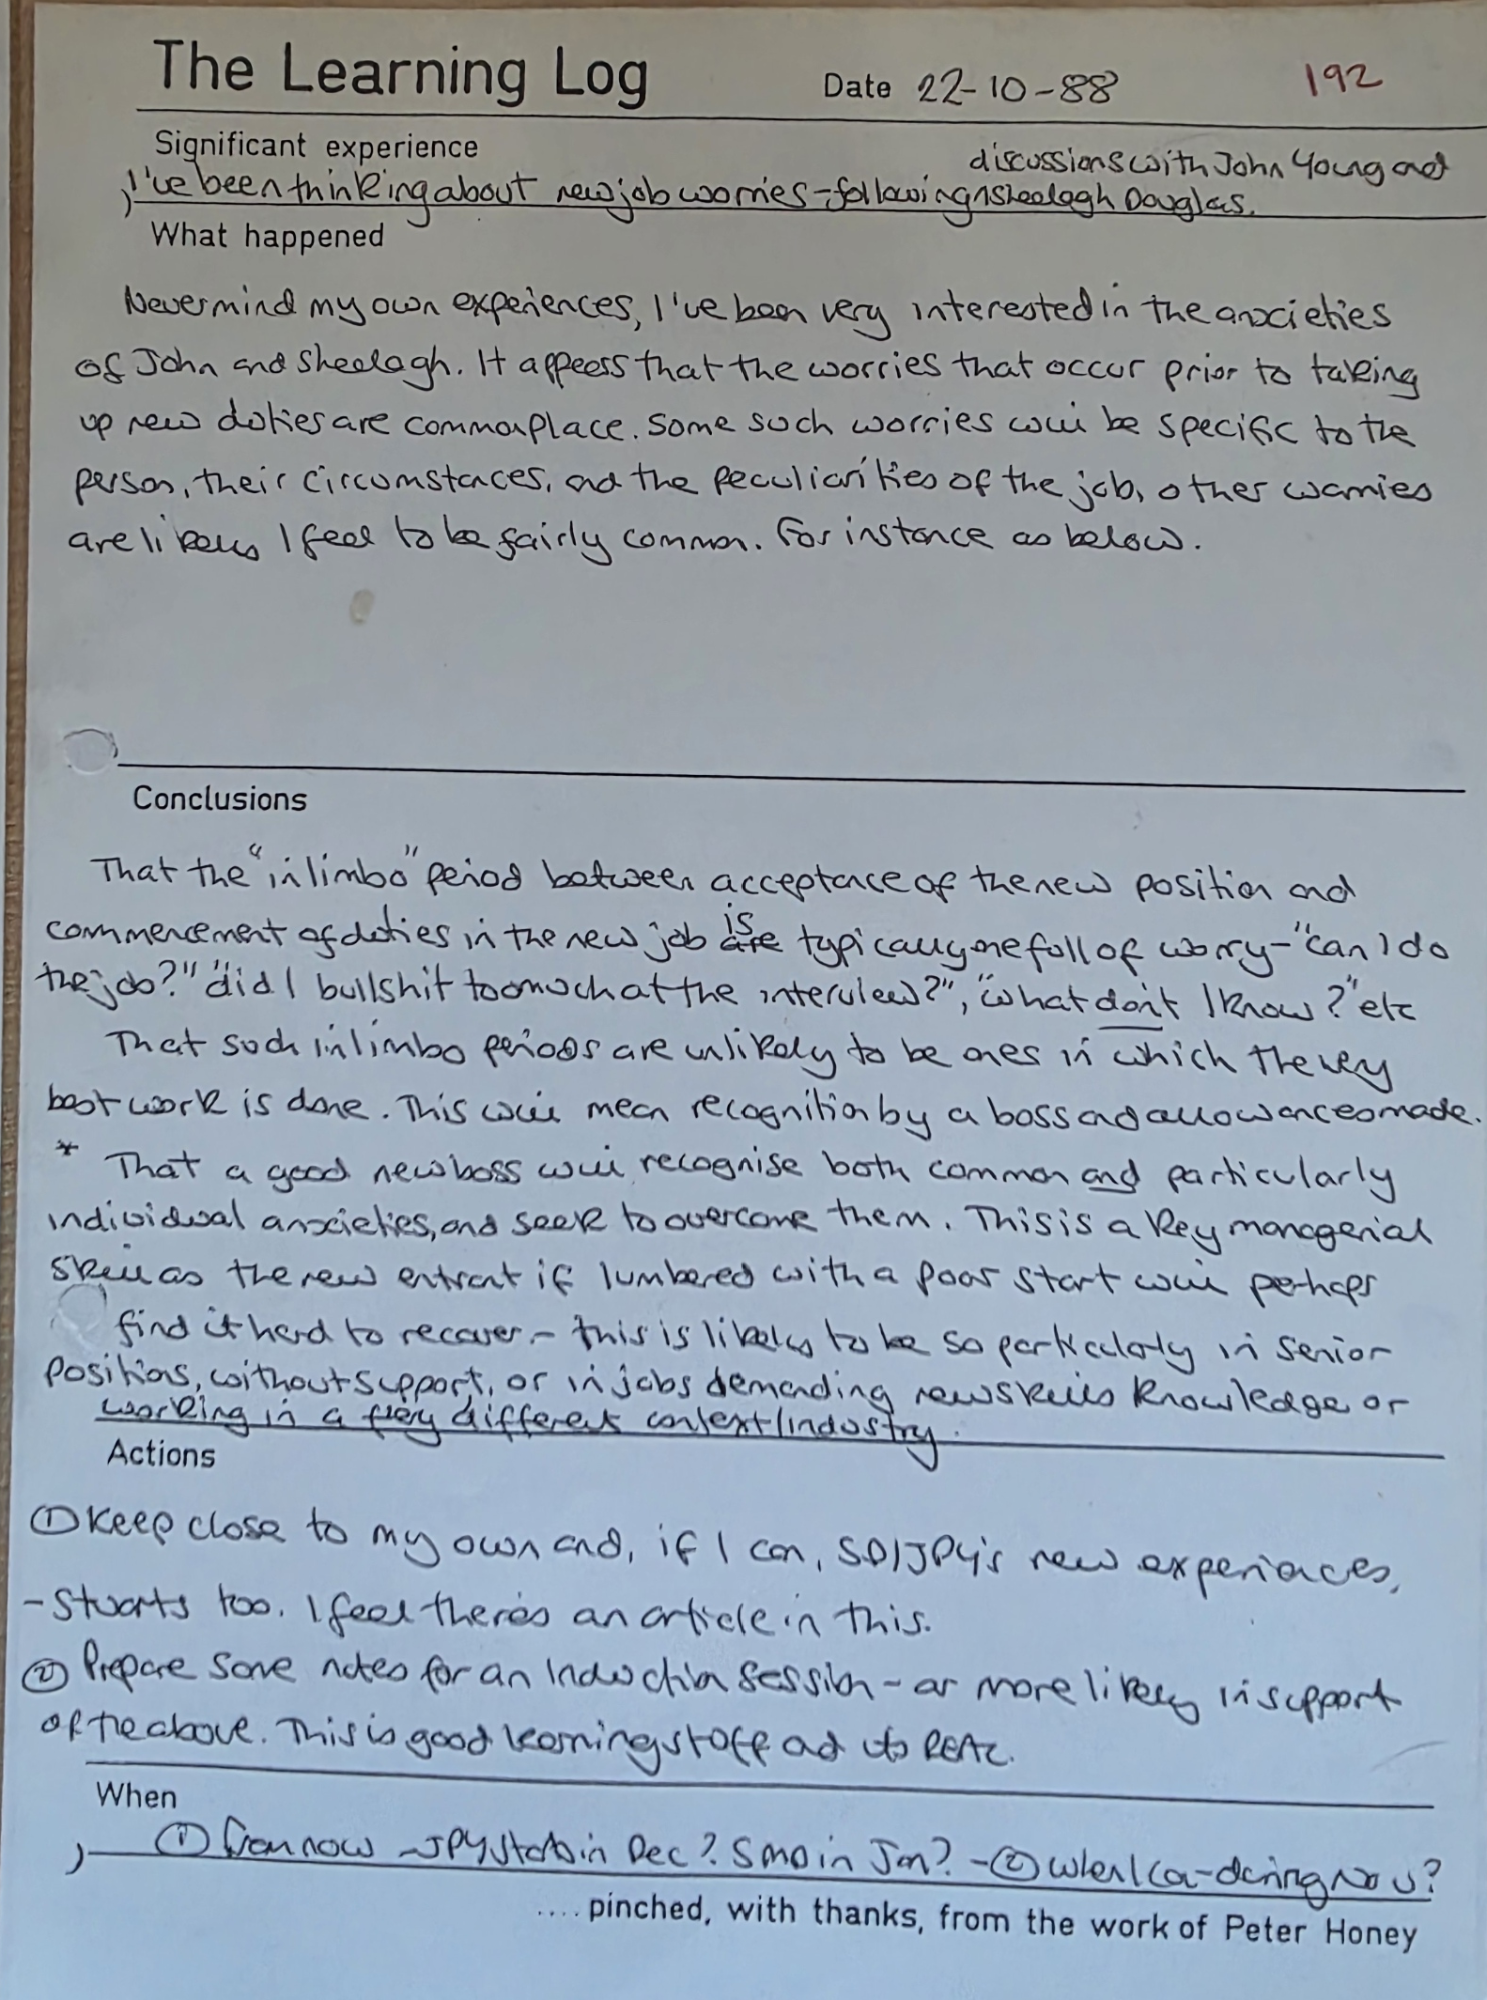 The Learning Log
Date 22-10-88
192
Significant experience
discussions with John Young and
I've been thinking about new job worries - following ^ Sheelagh Douglas.
What happened
Nevermind my own experiences, I've been very interested in the anxcieties
of John and Sheelagh. It appears that the worries that occur prior to taking
up new duties are commonplace. Some such worries will be specific to the
person, their circumstances, and the peculiarities of the job, other worries
are likely I feel to be fairly common. For instance as below.
Conclusions
That the "in limbo" period between acceptance of the new position and
is
commencement of duties in the new job are typically one full of worry - "can I do
the job?" "did I bullshit too much at the interview?", "what don't I know?" etc
That such in limbo periods are unlikely to be ones in which the very
best work is done. This will mean recognition by a boss and allowances made.
* That a good new boss will recognise both common and particularly
individual anxcieties, and seek to overcome them. This is a key managerial
skill as the new entrant if lumbered with a poor start will perhaps
find it hard to recover - this is likely to be so particularly in senior
positions, without support, or in jobs demanding new skills knowledge or
working in a very different context/industry.
Actions
① Keep close to my own and, if I can, SD/JPY's new experiences,
- Stuarts too. I feel there's an article in this.
② Prepare some notes for an Induction session - or more likely in support
of the above. This is good learning stuff and its REAL.
When
① From now - JPY starts in Dec? SMD in Jan? - ② When I can - during Nov?
.... pinched, with thanks, from the work of Peter Honey